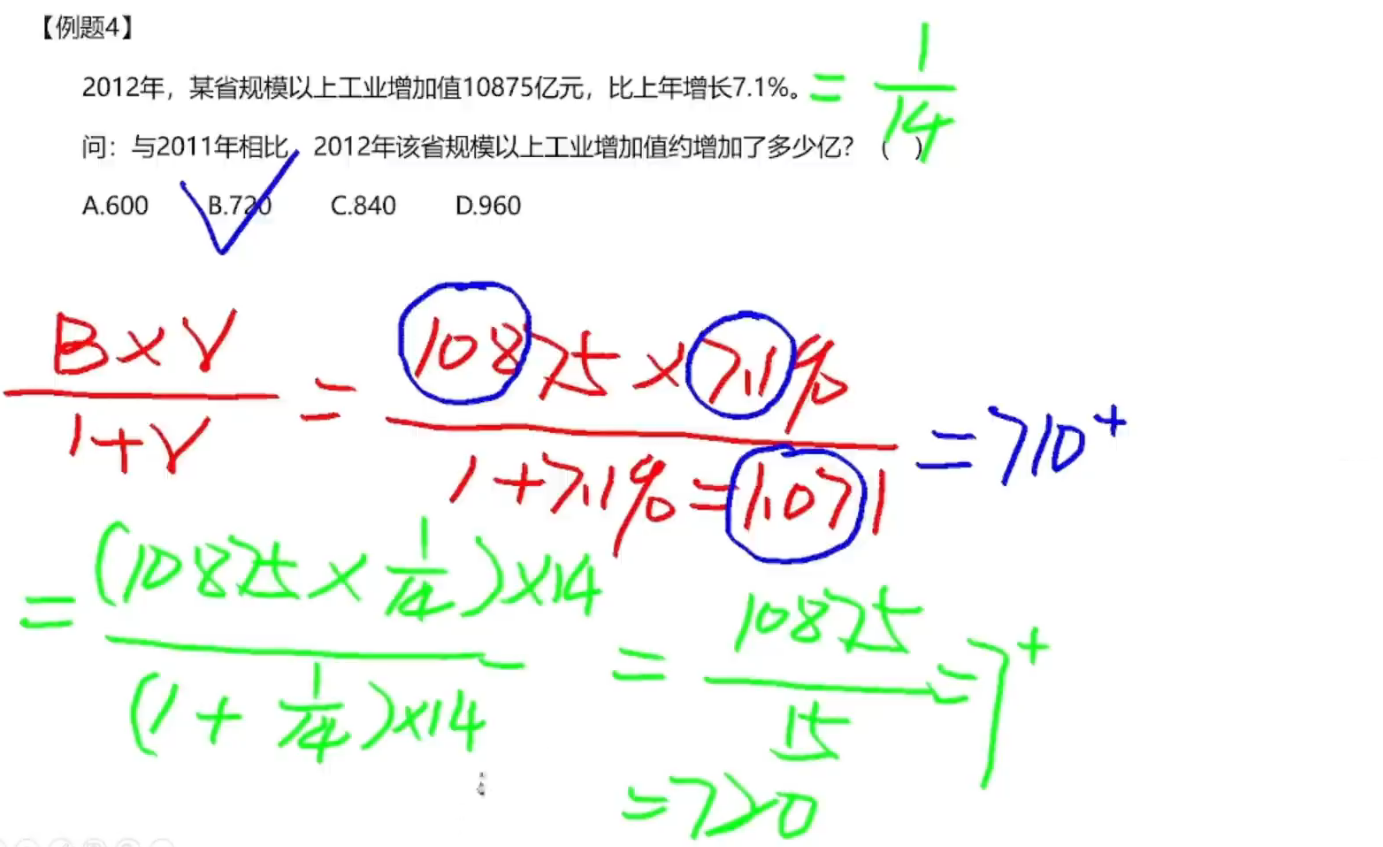 【例题4】
2012年，某省规模以上工业增加值10875亿元，比上年增长7.1%。 = 1/14
问：与2011年相比，2012年该省规模以上工业增加值约增加了多少亿？（ ）
A.600 B.720 C.840 D.960
B×r/1+r = 10875×7.1%/1+7.1%=1.071 = 710+
= (10875×1/14)×14/(1+1/14)×14 = 10875/15 = 7+
=720